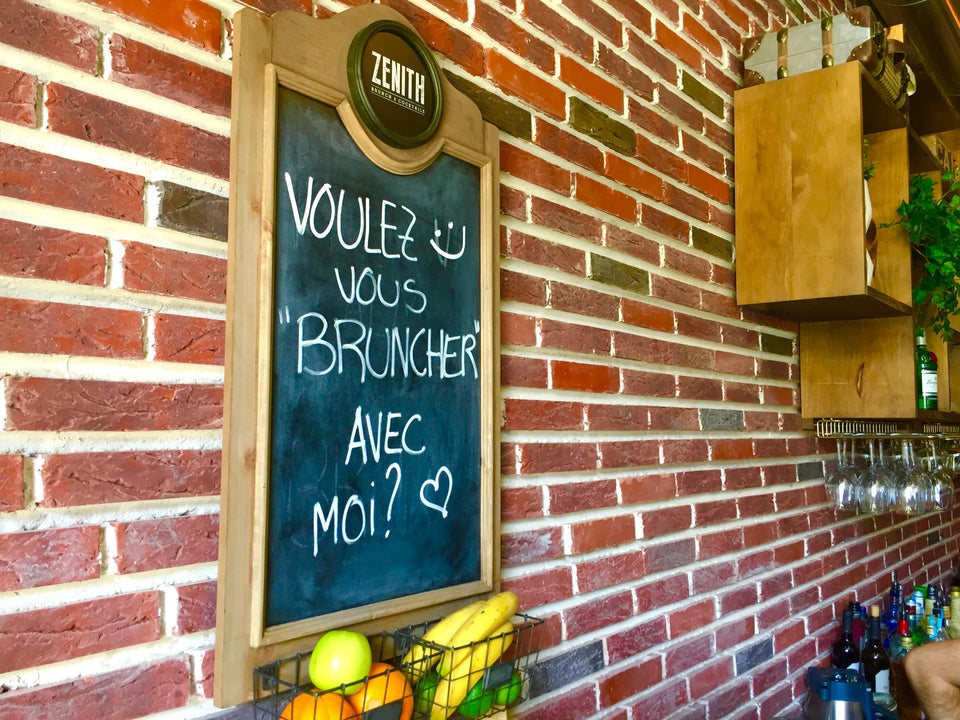 ZENITH
BRUNCH & COCKTAILS
VOULEZ
VOUS
"BRUNCHER"
AVEC
MOi?